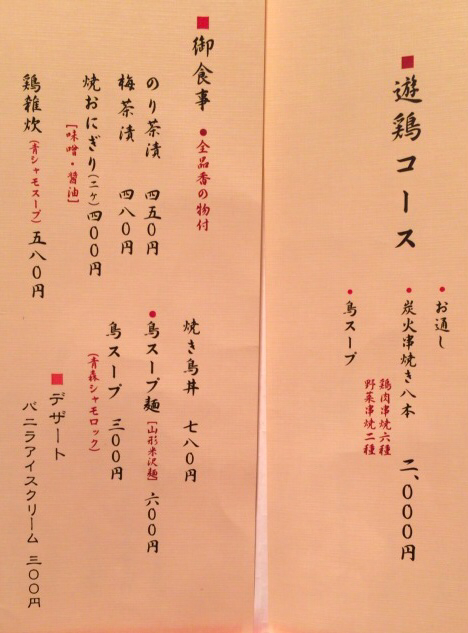 ■遊鶏コース
●お通し
●炭火串焼き八本 二、000円
鶏肉串焼六種
野菜串焼二種
●鳥スープ
■御食事 ●全品香の物付
のり茶漬 四五0円
梅茶漬 四八0円
焼おにぎり(二ケ)四00円
[味噌・醤油]
鶏雑炊(青シャモスープ)五八0円
焼き鳥丼 七八0円
●鳥スープ麺[山形米沢麺]六00円
鳥スープ 三00円
(青森シャモロック)
■デザート
バニラアイスクリーム 三〇〇円